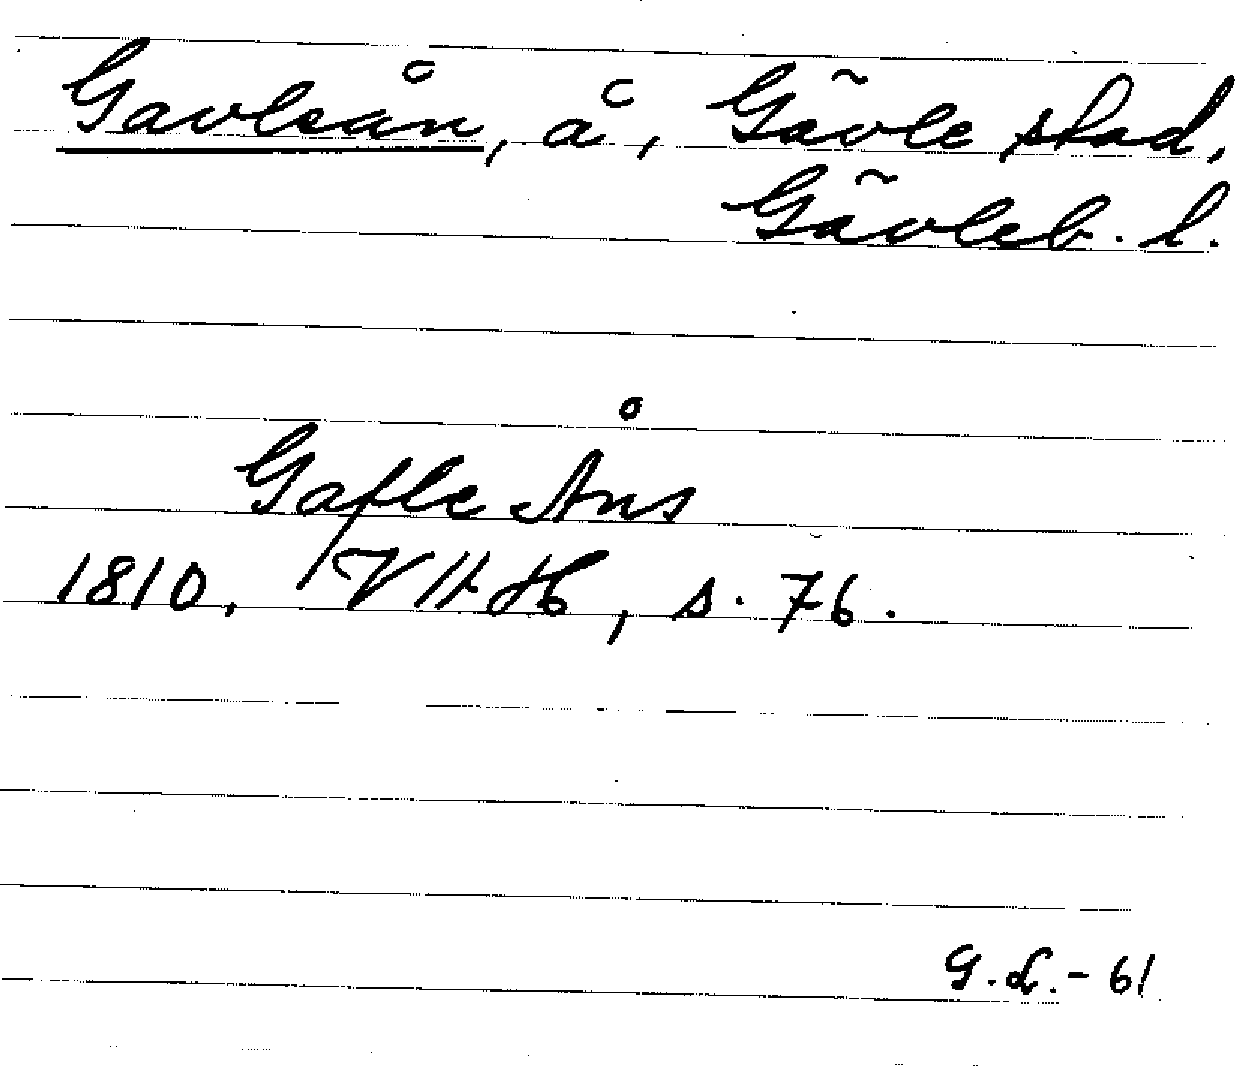 Gavleån, å, Gävle stad,
Gävleb. l.
Gafle Åns
1810. VHH, s. 76.
G.L.-61